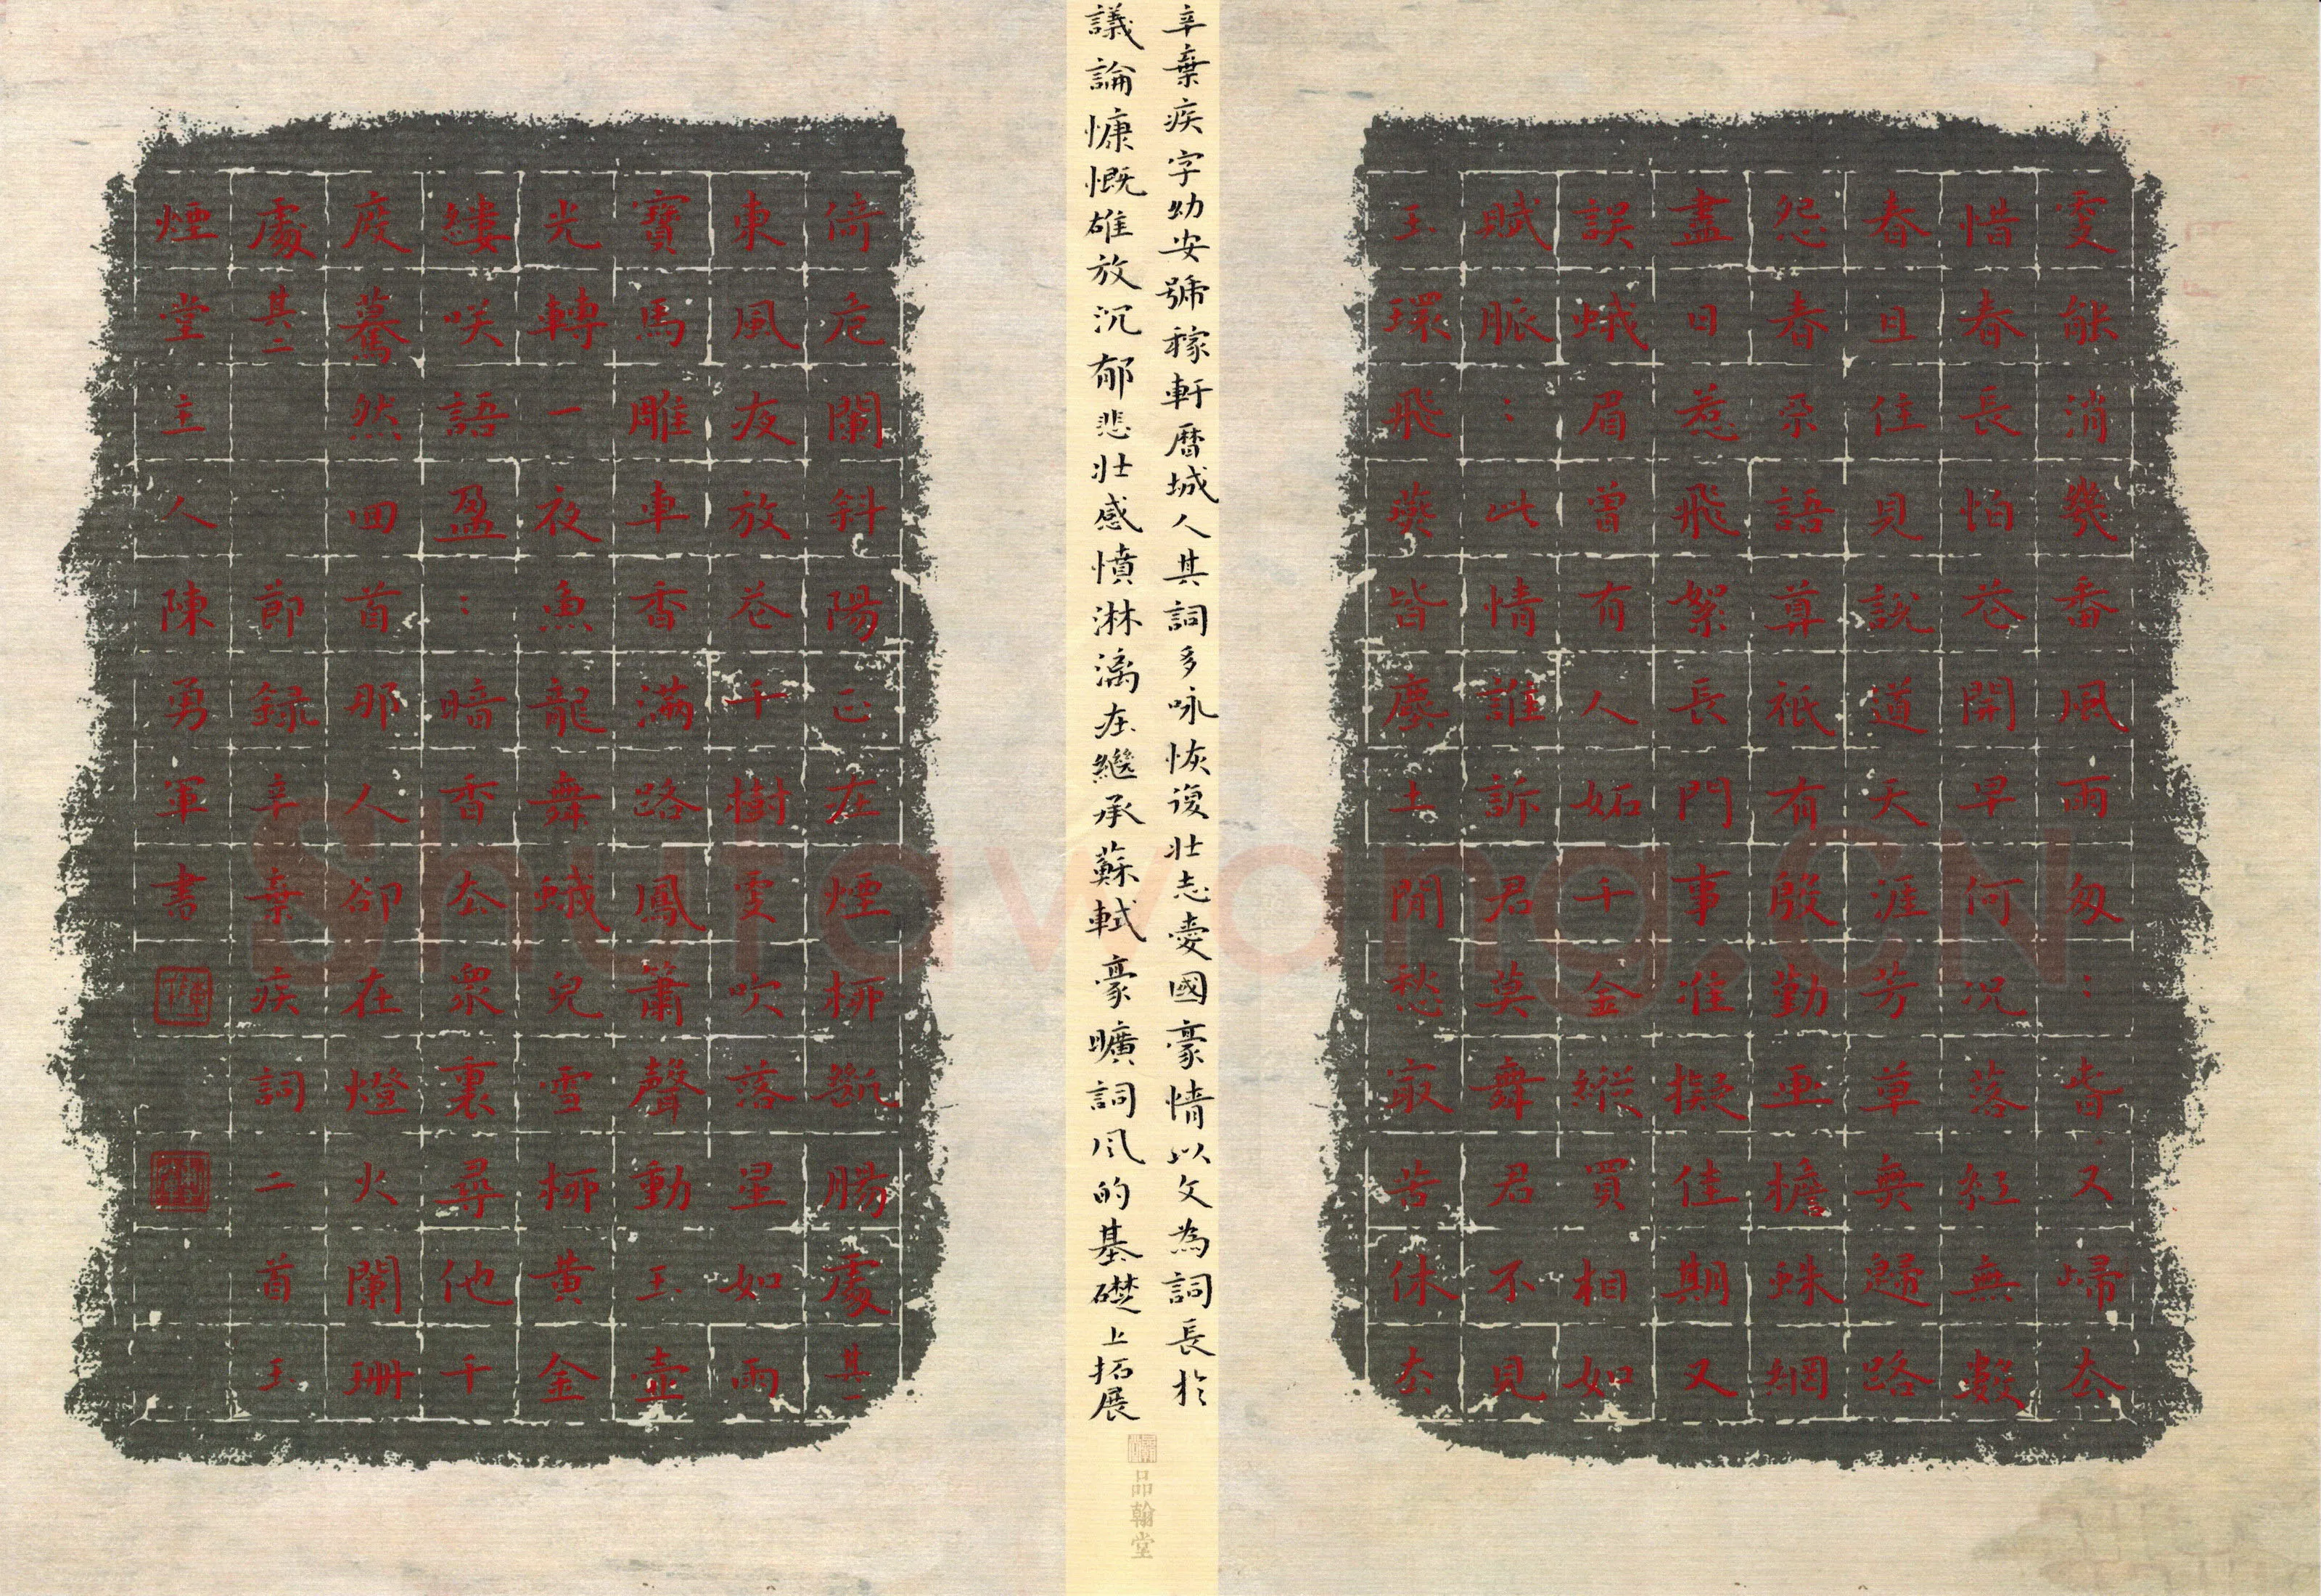 更能消幾番風雨匆：旾又歸去
惜春長怕花開早何況落紅無數
春且住見說道天涯芳草無歸路
怨春不語算祇有殷勤畫檐蛛網
盡日惹飛絮長門事準擬佳期又
誤蛾眉曾有人妬千金縱買相如
賦脈：此情誰訴君莫舞君不見
玉環飛燕皆塵土閒愁最苦休去
辛棄疾字幼安號稼軒曆城人其詞多咏恢復壯志愛國豪情以文為詞長於
議論慷慨雄放沉郁悲壯感憤淋漓在繼承蘇軾豪曠詞风的基礎上拓展
品翰堂
倚危闌斜陽正在煙柳斷腸處其一
東風夜放花千樹更吹落星如雨
寶馬雕車香滿路鳳簫聲動玉壺
光轉一夜魚龍舞蛾兒雪柳黃金
縷咲語盈：暗香去眾裏尋他千
度驀然回首那人卻在燈火闌珊
處其二 節錄辛棄疾詞二首玉
煙堂主人陳勇軍書
Shufawang.CN